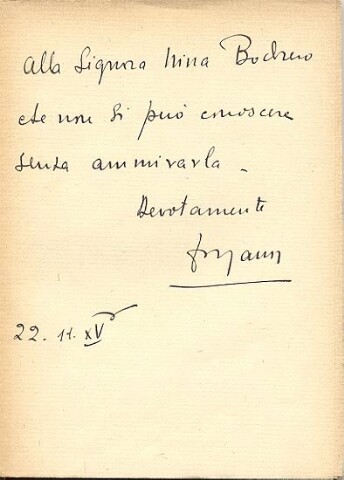 Alla Signora Nina Bodrero
che non si può conoscere
senza ammirarla.
Devotamente
22. 11. XV